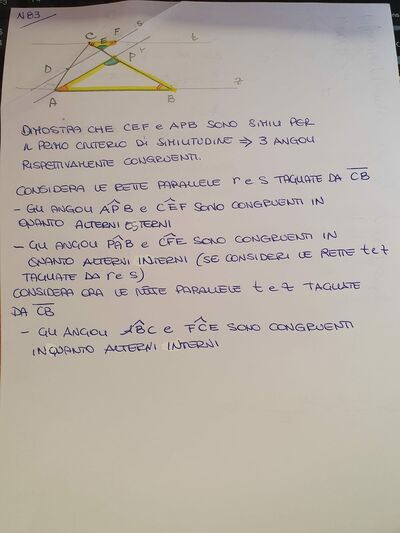 N83
S
C F t
E
D P r
A B z
DIMOSTRA CHE CEF e APB SONO SIMILI PER
IL PRIMO CRITERIO DI SIMILITUDINE ⇒ 3 ANGOLI
RISPETTIVAMENTE CONGRUENTI.
CONSIDERA LE RETTE PARALLELE r e s TAGLIATE DA C̅B̅
- GLI ANGOLI AP̂B e CÊF SONO CONGRUENTI IN
QUANTO ALTERNI ESTERNI
- GLI ANGOLI PÂB e CF̂E SONO CONGRUENTI IN
QUANTO ALTERNI INTERNI (SE CONSIDERI LE RETTE t e z
TAGLIATE DA r e s)
CONSIDERA ORA LE RETTE PARALLELE t e z TAGLIATE
DA C̅B̅
- GLI ANGOLI AB̂C e FĈE SONO CONGRUENTI
IN QUANTO ALTERNI INTERNI